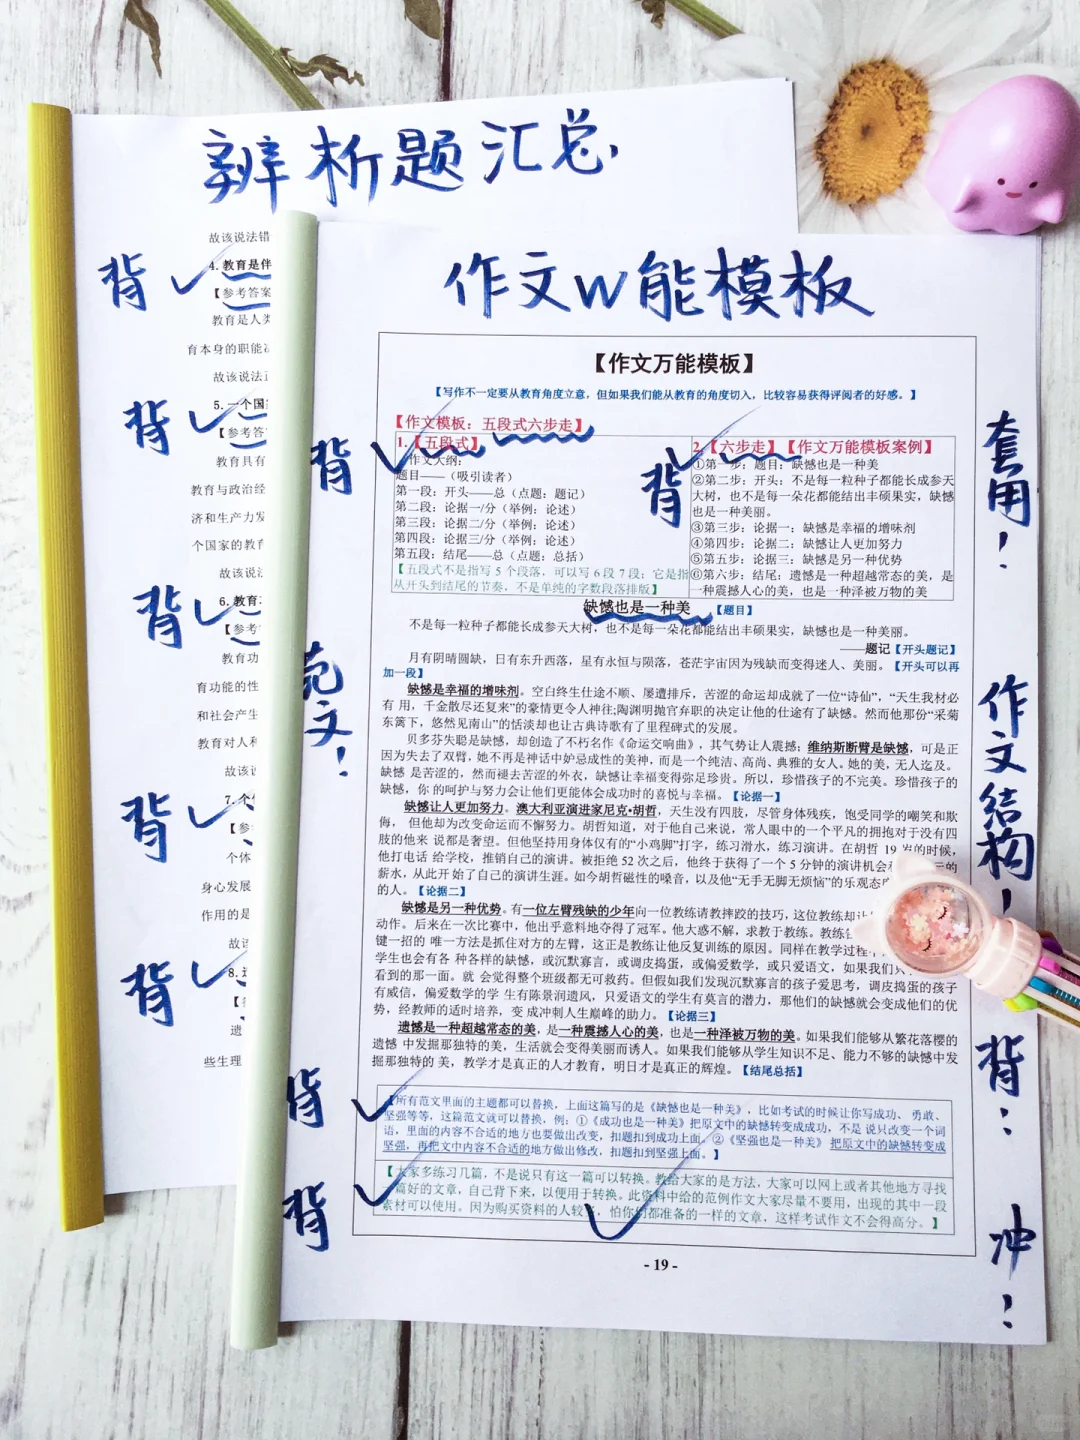 辨析题汇总
故该说法错
背
4.教育是伴
【参考答案
教育是人类
育本身的职能
故该说法
背
5.一个国
【参考答
教育具有
教育与政治经
济和生产力发
个国家的教育
故该说
背
6.教育
【参考
教育功
育功能的性
和社会产生
教育对人
故该
背
7.个
【参
个体
身心发展
作用的是
故该
背
8.
【
遗
些生理
作文w能模板
【作文万能模板】
【写作不一定要从教育角度立意，但如果我们能从教育的角度切入，比较容易获得评阅者的好感。】
【作文模板：五段式六步走】
背
1.【五段式】
作文大纲：
题目——（吸引读者）
第一段：开头——总（点题：题记）
第二段：论据一/分（举例：论述）
第三段：论据二/分（举例：论述）
第四段：论据三/分（举例：论述）
第五段：结尾——总（点题：总括）
【五段式不是指写 5 个段落，可以写 6 段 7 段；它是指
从开头到结尾的节奏，不是单纯的字数段落排版】
背
2.【六步走】【作文万能模板案例】
①第一步：题目：缺憾也是一种美
②第二步：开头：不是每一粒种子都能长成参天
大树，也不是每一朵花都能结出丰硕果实，缺憾
也是一种美丽。
③第三步：论据一：缺憾是幸福的增味剂
④第四步：论据二：缺憾让人更加努力
⑤第五步：论据三：缺憾是另一种优势
⑥第六步：结尾：遗憾是一种超越常态的美，是
一种震撼人心的美，也是一种泽被万物的美
缺憾也是一种美 【题目】
不是每一粒种子都能长成参天大树，也不是每一朵花都能结出丰硕果实，缺憾也是一种美丽。
——题记【开头题记】
月有阴晴圆缺，日有东升西落，星有永恒与陨落，苍茫宇宙因为残缺而变得迷人、美丽。【开头可以再
加一段】
缺憾是幸福的增味剂。空白终生仕途不顺、屡遭排斥，苦涩的命运却成就了一位“诗仙”，“天生我材必
有 用，千金散尽还复来”的豪情更令人神往;陶渊明抛官弃职的决定让他的仕途有了缺憾。然而他那份“采菊
东篱下，悠然见南山”的恬淡却也让古典诗歌有了里程碑式的发展。
贝多芬失聪是缺憾，却创造了不朽名作《命运交响曲》，其气势让人震撼；维纳斯断臂是缺憾，可是正
因为失去了双臂，她不再是神话中妒忌成性的美神，而是一个纯洁、高尚、典雅的女人。她的美，无人迄及。
缺憾 是苦涩的，然而褪去苦涩的外衣，缺憾让幸福变得弥足珍贵。所以，珍惜孩子的不完美。珍惜孩子的
缺憾，你 的呵护与努力会让他们更能体会成功时的喜悦与幸福。【论据一】
缺憾让人更加努力。澳大利亚演进家尼克•胡哲，天生没有四肢，尽管身体残疾，饱受同学的嘲笑和欺
侮， 但他却为改变命运而不懈努力。胡哲知道，对于他自己来说，常人眼中的一个平凡的拥抱对于没有四
肢的他来 说都是奢望。但他坚持用身体仅有的“小鸡脚”打字，练习滑水，练习演讲。在胡哲 19 岁的时候，
他打电话 给学校，推销自己的演讲。被拒绝 52 次之后，他终于获得了一个 5 分钟的演讲机会
薪水，从此开 始了自己的演讲生涯。如今胡哲磁性的嗓音，以及他“无手无脚无烦恼”的乐观态
的人。【论据二】
缺憾是另一种优势。有一位左臂残缺的少年向一位教练请教摔跤的技巧，这位教练却
动作。后来在一次比赛中，他出乎意料地夺得了冠军。他大惑不解，求教于教练。教练
键一招的 唯一方法是抓住对方的左臂，这正是教练让他反复训练的原因。同样在教学过程
学生也会有各 种各样的缺憾，或沉默寡言，或调皮捣蛋，或偏爱数学，或只爱语文，如果我们只
看到的那一面。就 会觉得整个班级都无可救药。但假如我们发现沉默寡言的孩子爱思考，调皮捣蛋的孩子
有威信，偏爱数学的学 生有陈景润遗风，只爱语文的学生有莫言的潜力，那他们的缺憾就会变成他们的优
势，经教师的适时培养，变 成冲刺人生巅峰的助力。【论据三】
遗憾是一种超越常态的美，是一种震撼人心的美，也是一种泽被万物的美。如果我们能够从繁花落樱的
遗憾 中发掘那独特的美，生活就会变得美丽而诱人。如果我们能够从学生知识不足、能力不够的缺憾中发
掘那独特的 美，教学才是真正的人才教育，明日才是真正的辉煌。【结尾总括】
范文！
背
【所有范文里面的主题都可以替换，上面这篇写的是《缺憾也是一种美》，比如考试的时候让你写成功、勇敢、
坚强等等，这篇范文就可以替换，例：①《成功也是一种美》把原文中的缺憾转变成成功，不是 说只改变一个词
语，里面的内容不合适的地方也要做出改变，扣题扣到成功上面。②《坚强也是一种美》 把原文中的缺憾转变成
坚强，再把文中内容不合适的地方做出修改，扣题扣到坚强上面。】
背
【大家多练习几篇，不是说只有这一篇可以转换。教给大家的是方法，大家可以网上或者其他地方寻找
一篇好的文章，自己背下来，以便用于转换。此资料中给的范例作文大家尽量不要用，出现的其中一段
素材可以使用。因为购买资料的人较多，怕你们都准备的一样的文章，这样考试作文不会得高分。】
- 19 -
套用！
作文结构！
背：
冲！